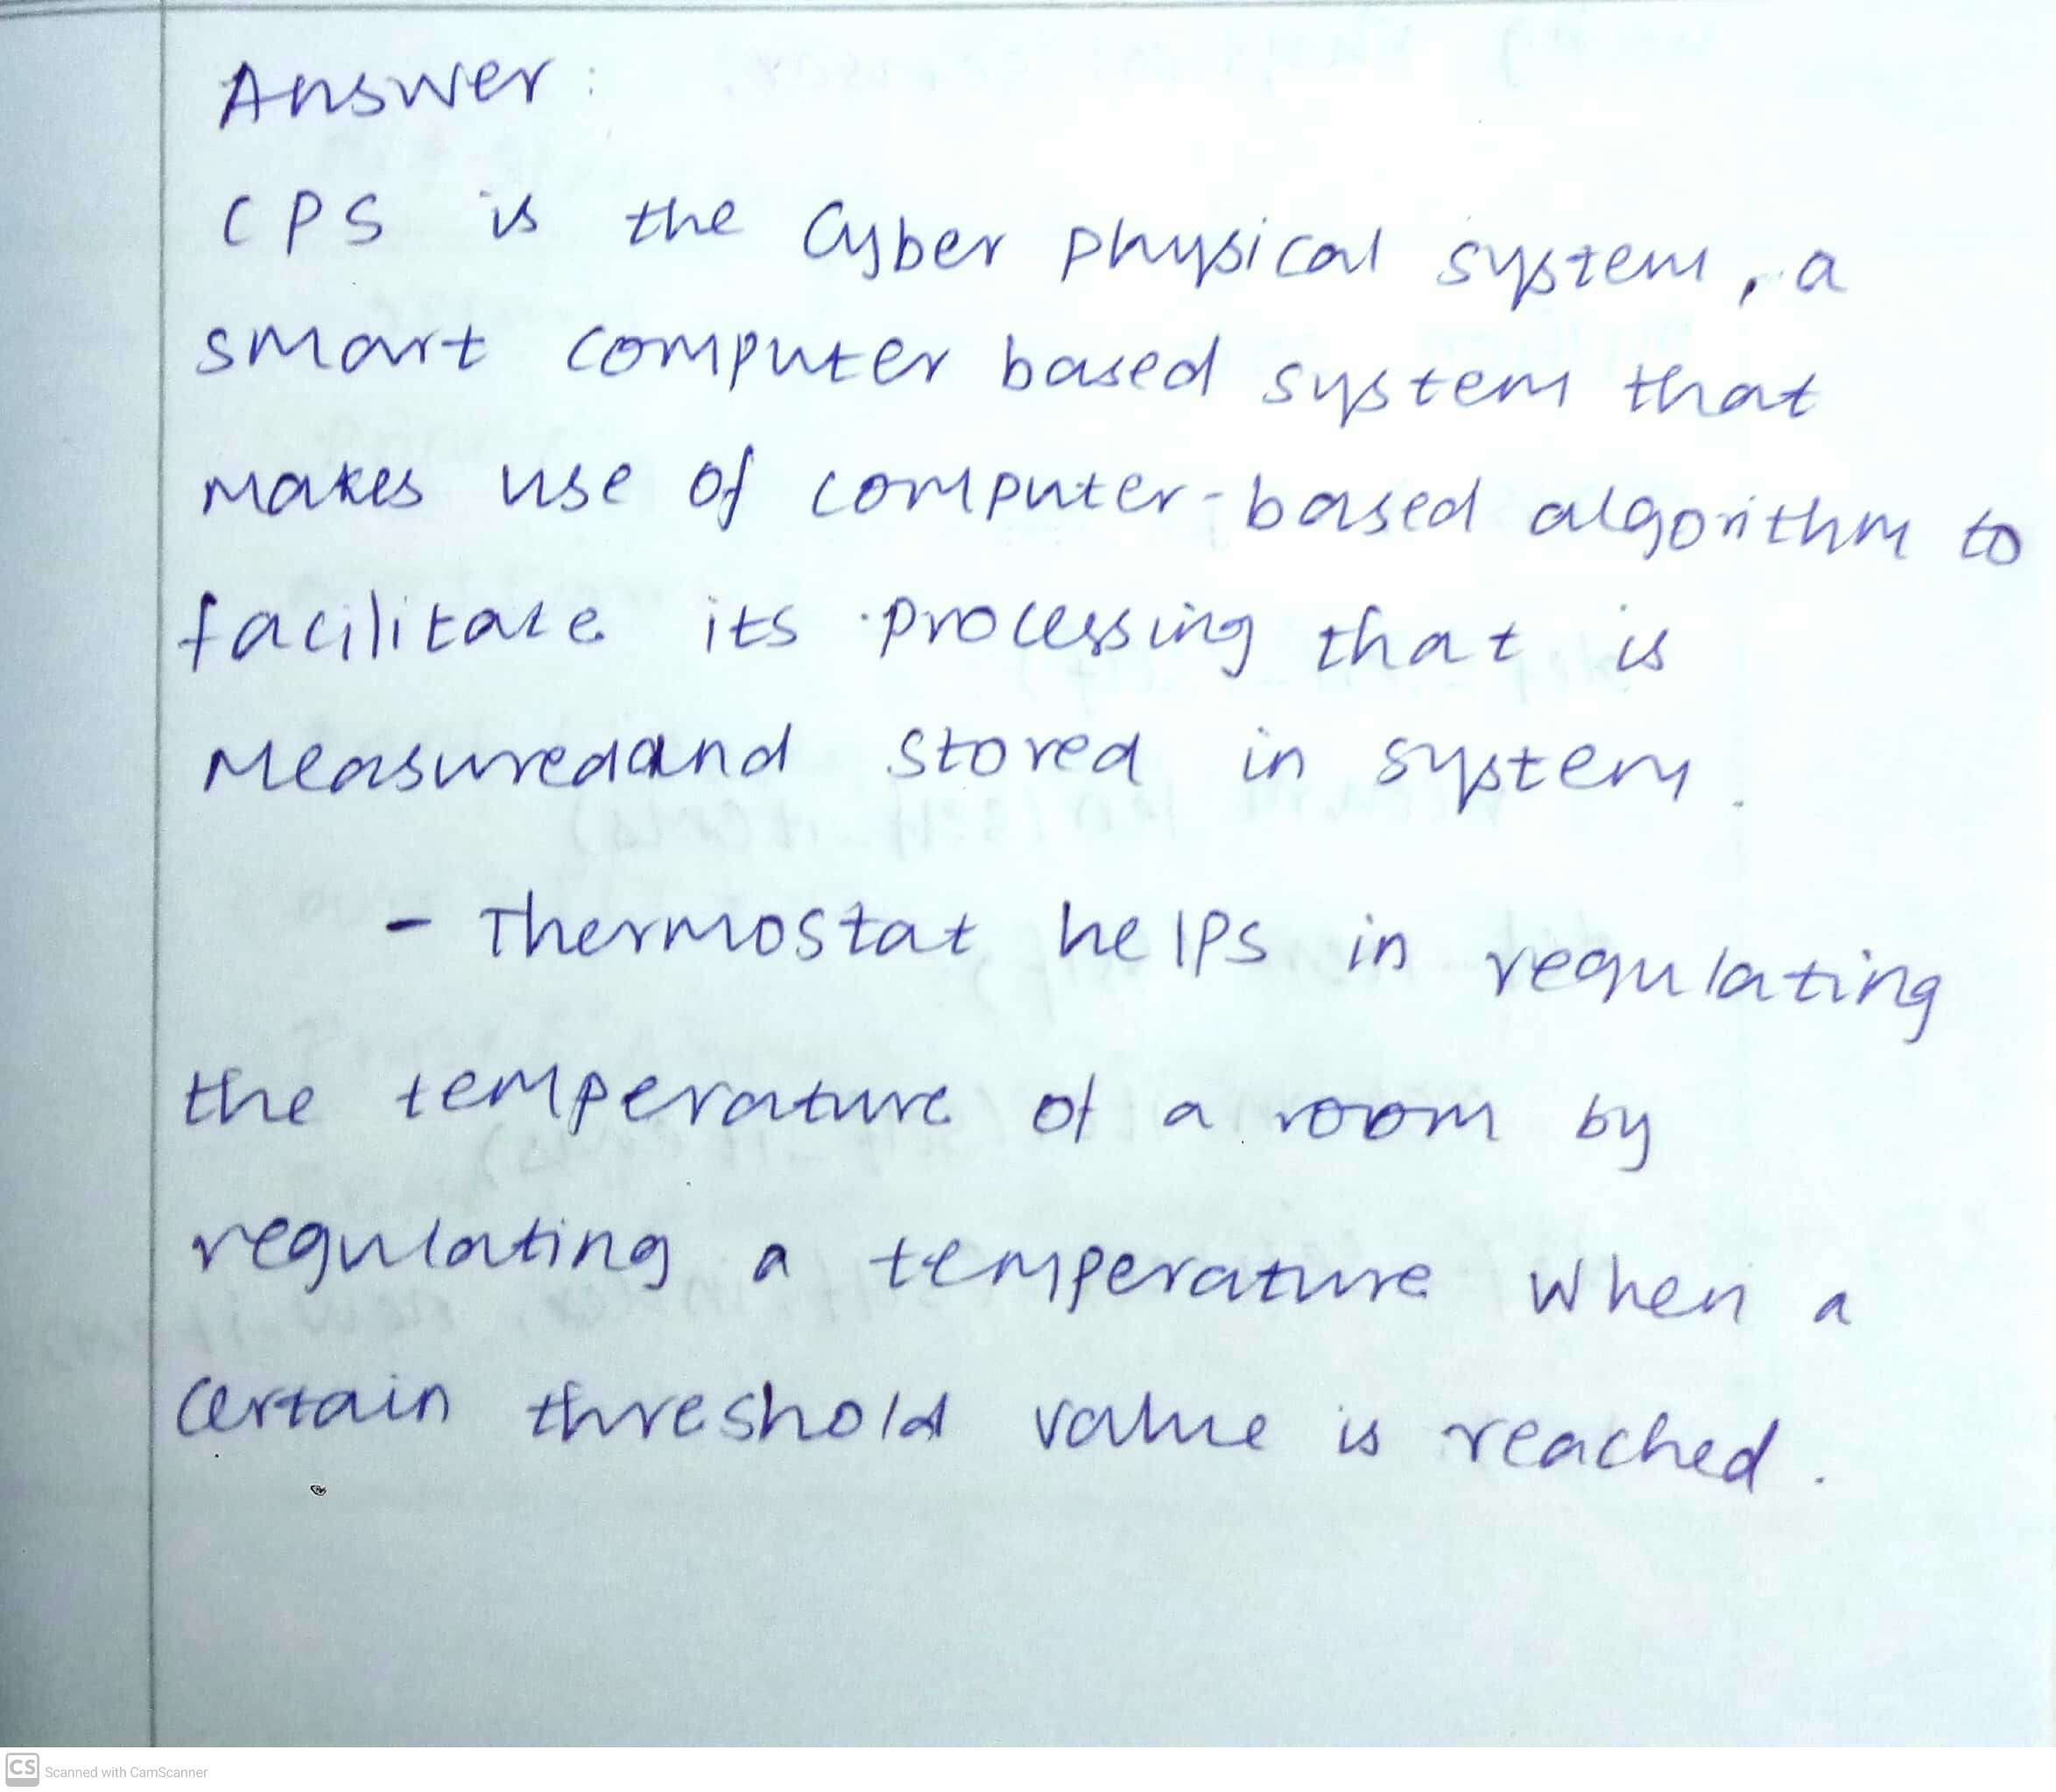 Answer:
CPS is the Cyber physical system, a
smart computer based system that
makes use of computer-based algorithm to
facilitate its processing that is
Measuredand stored in system.
- Thermostat helps in regulating
the temperature of a room by
regulating a temperature when a
certain threshold value is reached.
CS Scanned with CamScanner